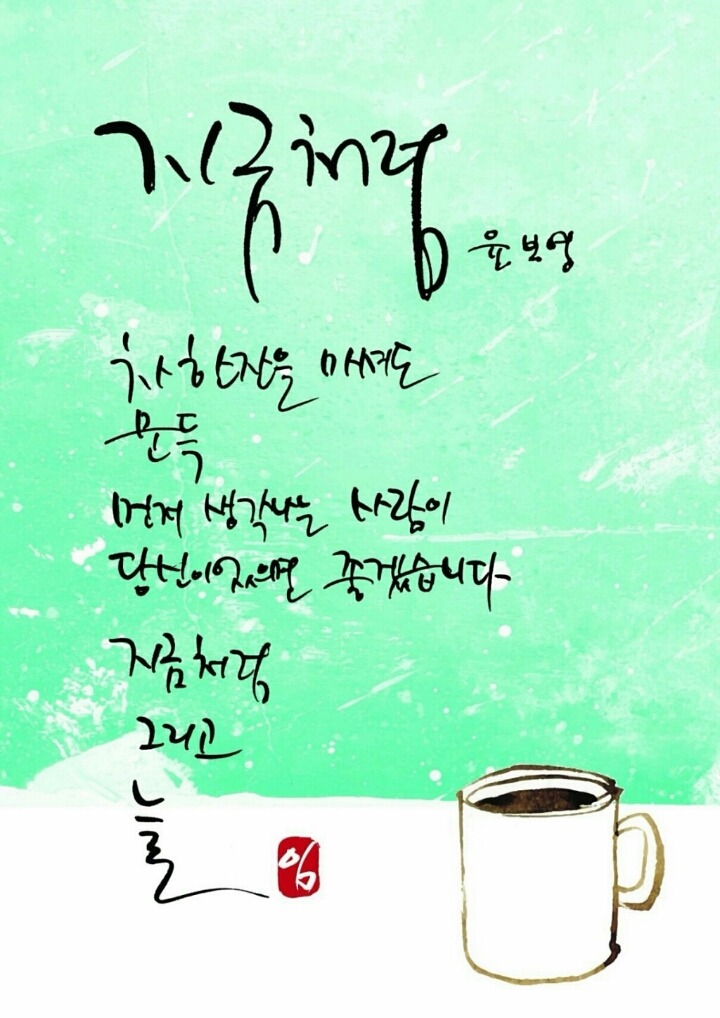 지금처럼
윤보영
차 한잔을 마셔도
문득
먼저 생각나는 사람이
당신이었으면 좋겠습니다
지금처럼
그리고
늘